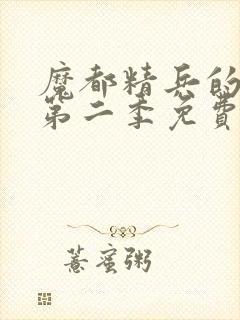 魔都精兵的
第二季免費
薏蜜粥